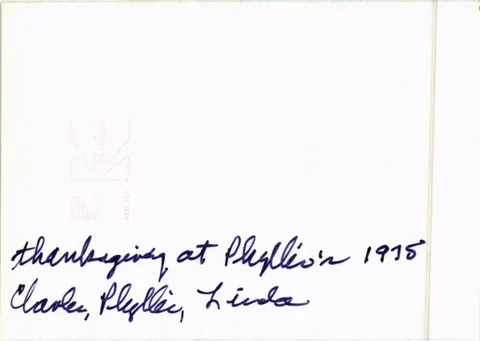 thanksgiving at Phyllis's 1975
Charles, Phyllis, Linda